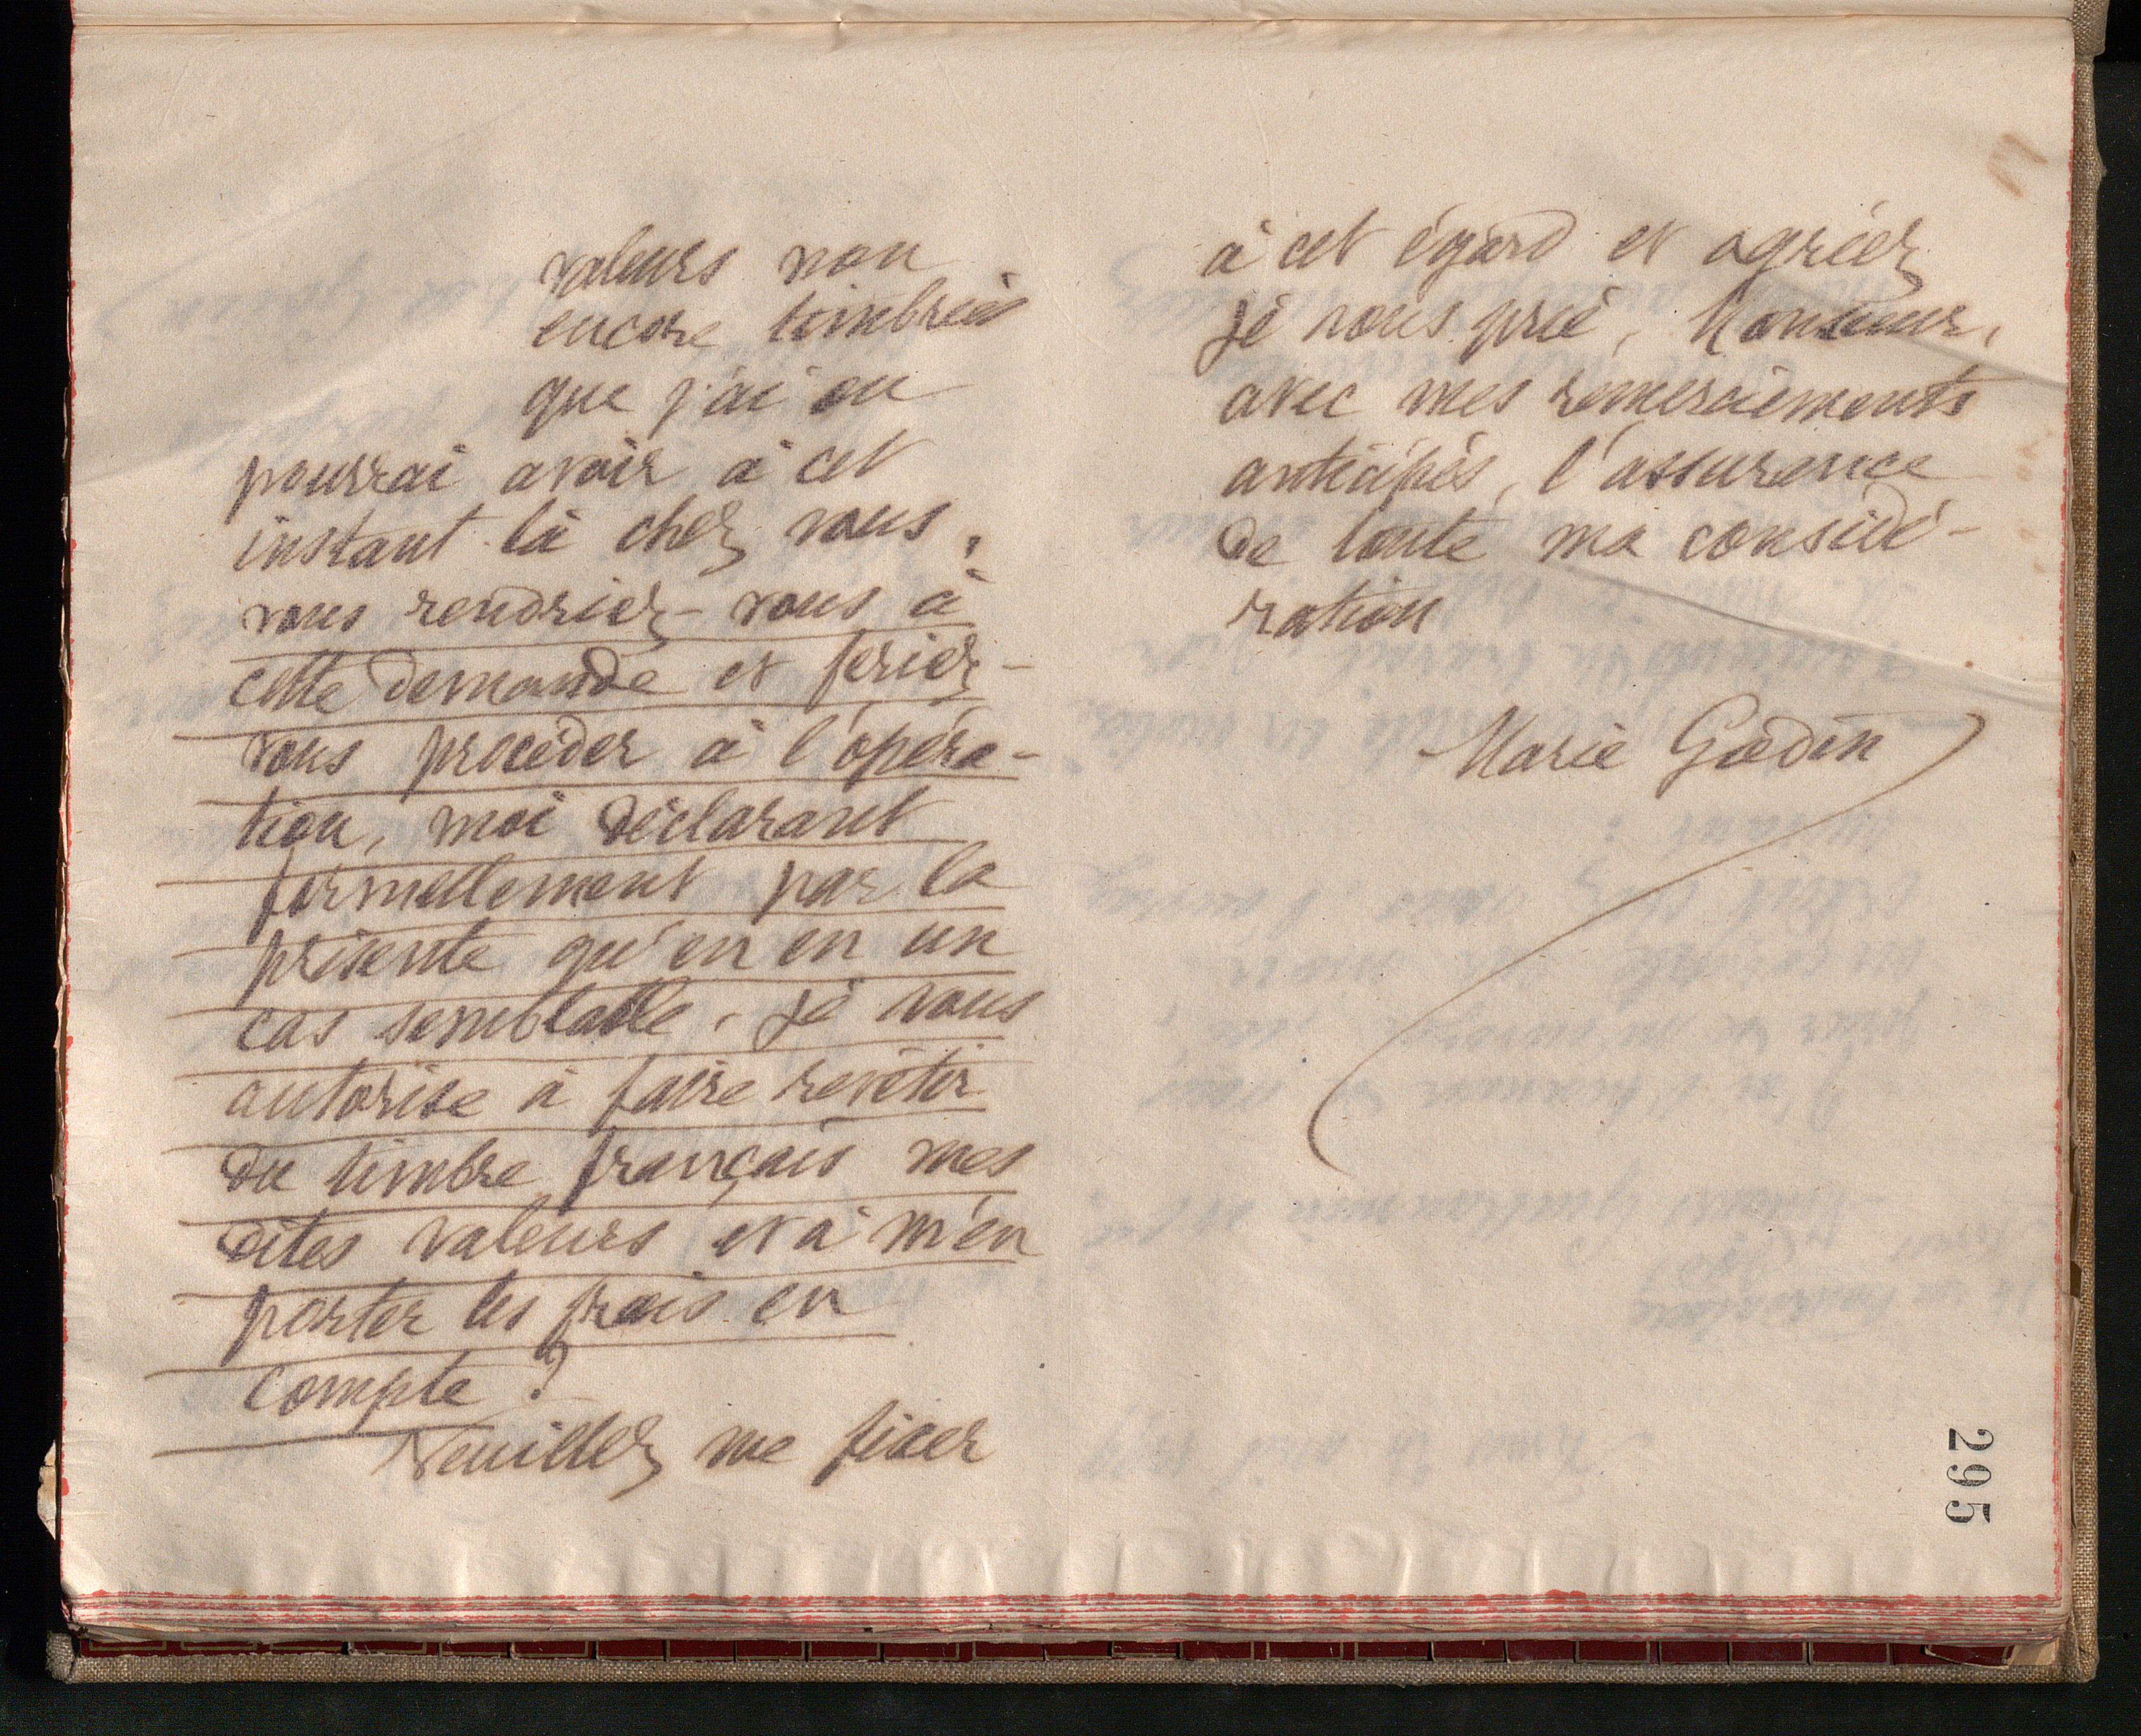 valeurs non
encore timbrées
que j'ai ou
pourrai avoir à cet
instant là chez vous,
vous rendriez-vous à
cette demande et feriez-
vous procéder à l'opéra-
tion, moi déclarant
formellement par la
présente qu'en en un
cas semblable, je vous
autorise à faire revêtir
du timbre français mes
dites valeurs et à m'en
porter les frais en
compte ?
Veuillez me fixer
à cet égard et agréez
je vous prie, Monsieur,
avec mes remerciements
anticipés, l'assurance
de toute ma considé-
ration
Marie Godin
295